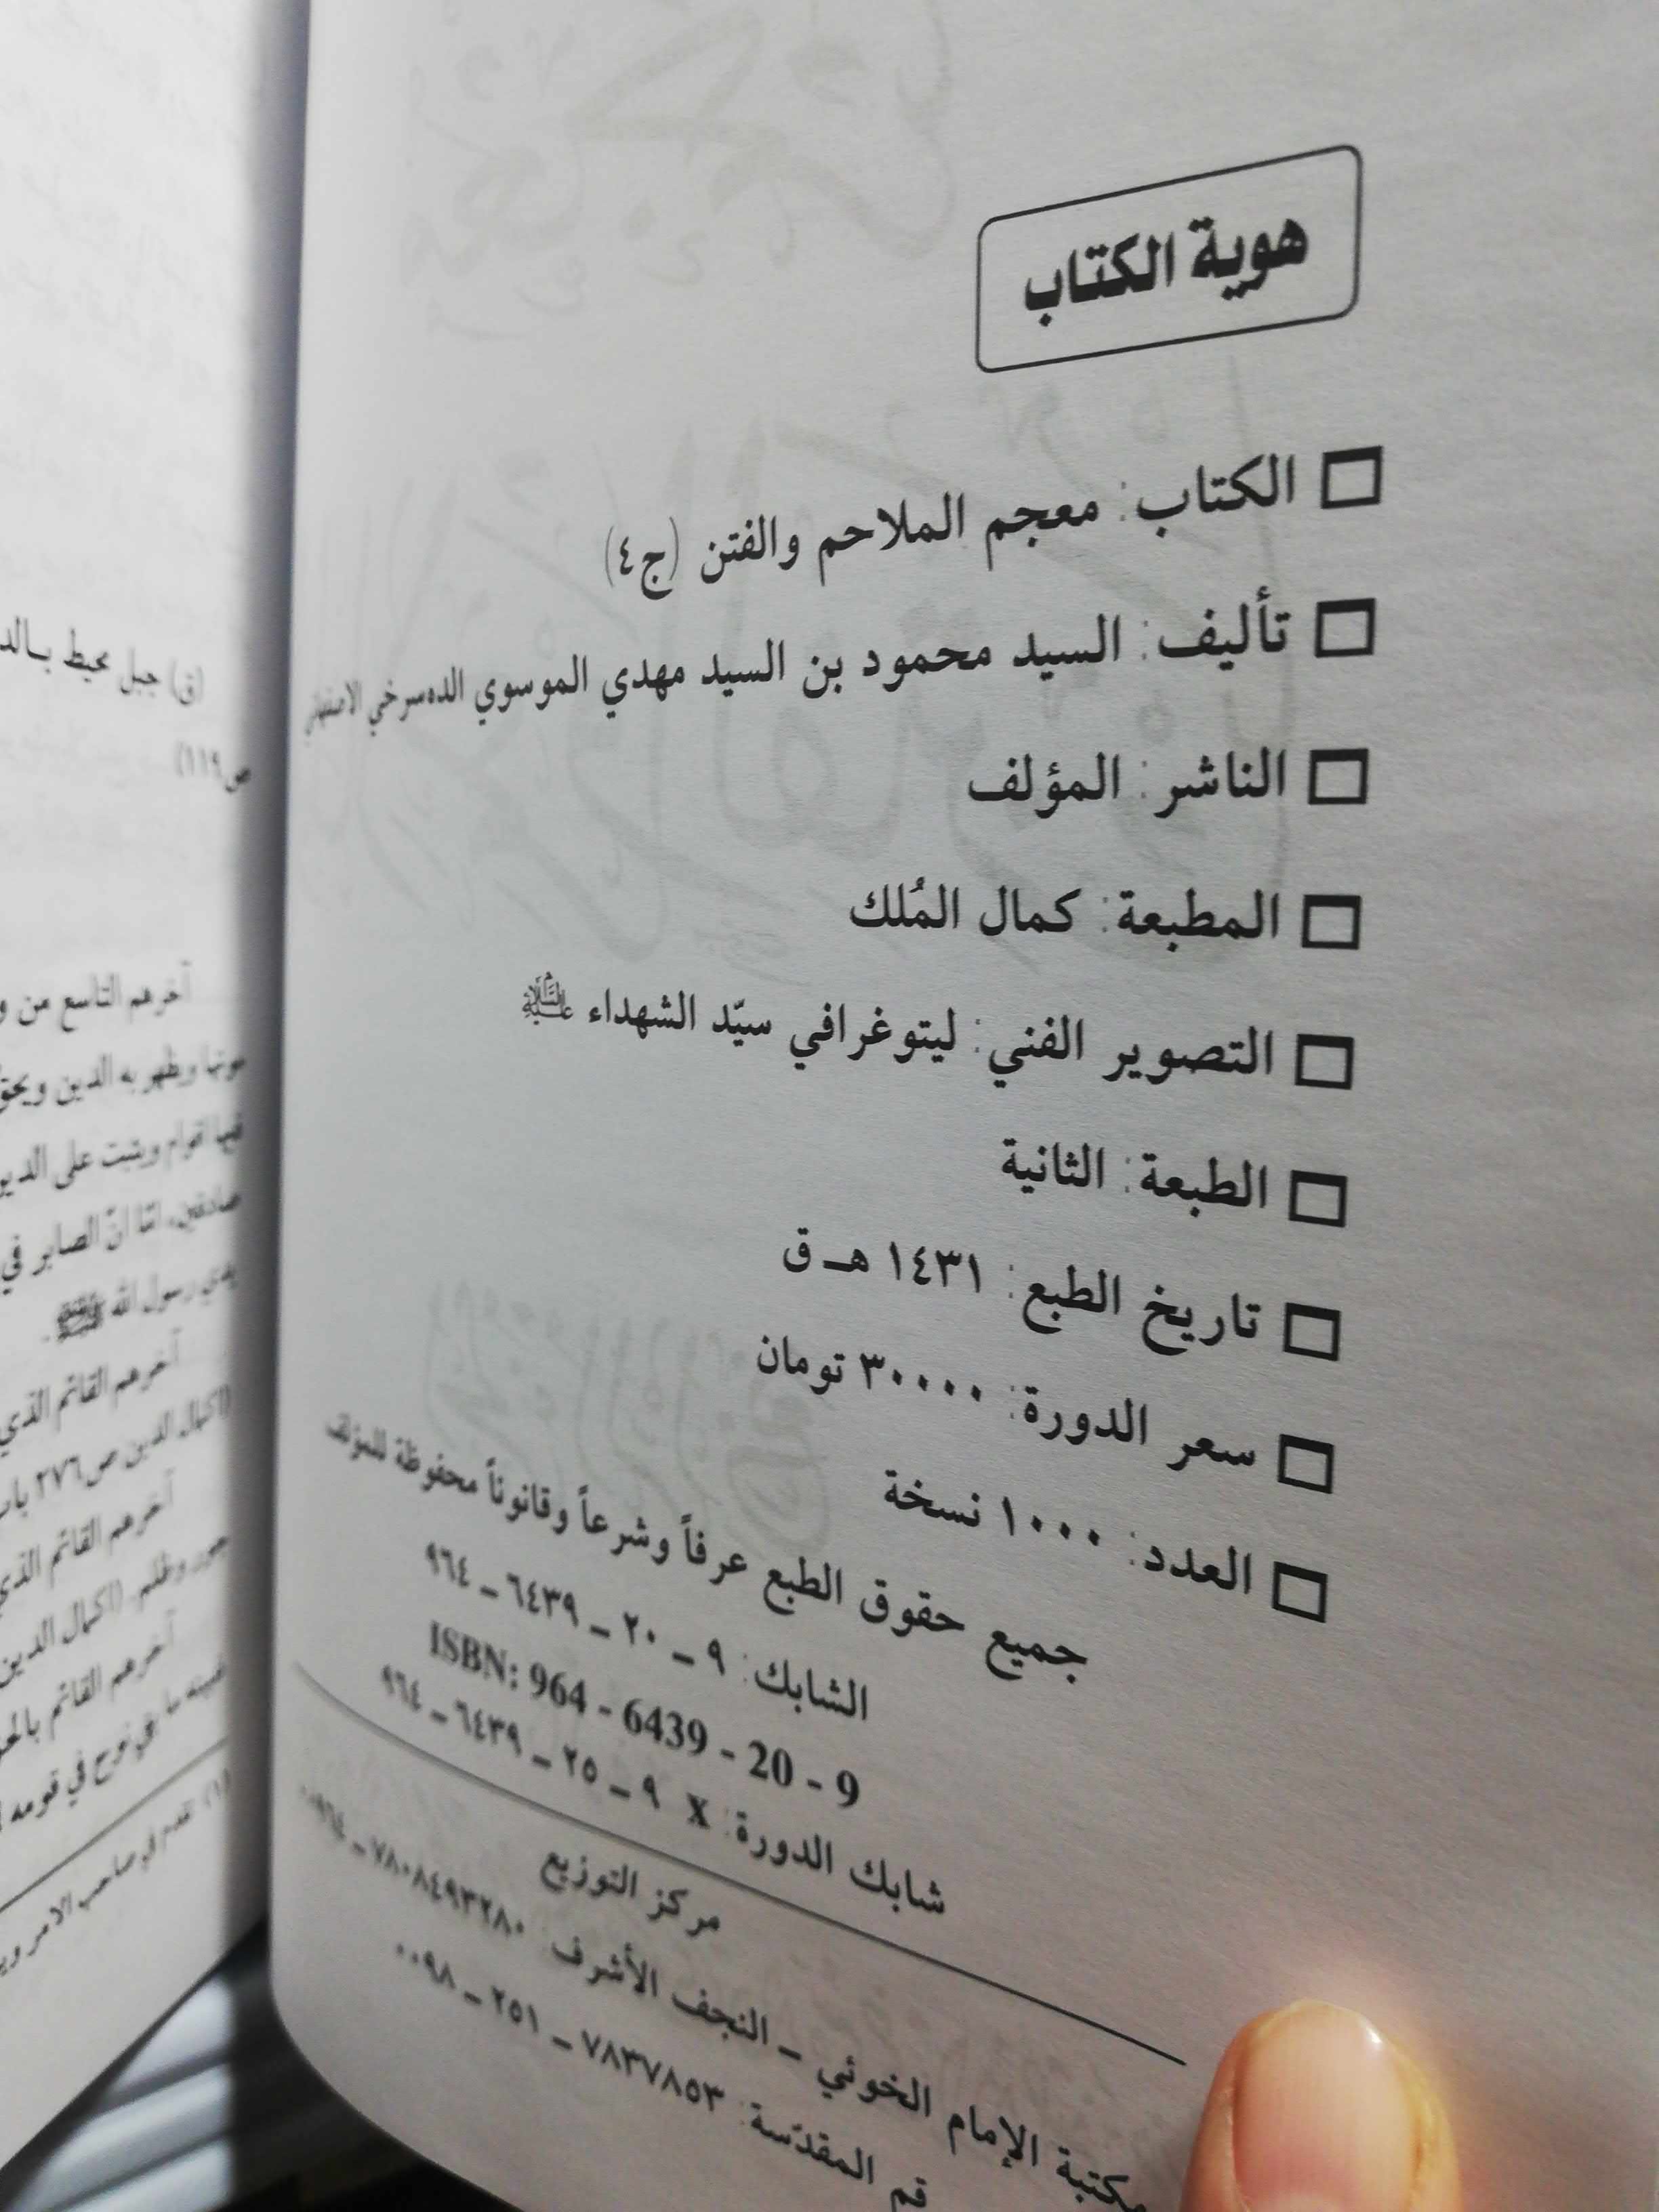 هوية الكتاب
الكتاب: معجم الملاحم والفتن (ج٤)
تأليف: السيد محمود بن السيد مهدي الموسوي الده‌سرخي الاصفهاني
الناشر: المؤلف
المطبعة: كمال المُلك
التصوير الفني: ليتوغرافي سيّد الشهداء عليه السلام
الطبعة: الثانية
تاريخ الطبع: ١٤٣١ هـ ق
سعر الدورة: ٣٠٠٠٠ تومان
العدد: ١٠٠٠ نسخة
جميع حقوق الطبع عرفاً وشرعاً وقانوناً محفوظة للمؤلف
الشابك: ٩ _ ٢٠ _ ٦٤٣٩ _ ٩٦٤
ISBN: 964 - 6439 - 20 - 9
شابك الدورة: X ٩ _ ٢٥ _ ٦٤٣٩ _ ٩٦٤
مركز التوزيع
مكتبة الإمام الخوئي _ النجف الأشرف: ٧٨٠٨٤٩٣٢٨٠ _ ٠٠٩٦٤
قم المقدّسة: ٧٨٣٧٨٥٣ _ ٢٥١ _ ٠٠٩٨
(ق) جبل محيط
ص١١٩)
آخرهم التاسع من
ويظهر به الدين
فيها اقوام ويثبت على
صادقين، امّا انّ الصابر في
يدي رسول الله
آخرهم القائم الذي
(اكمال الدين ص٢٧٦
آخرهم القائم الذي
جور وظلم. (اكمال الدين
آخرهم القائم
نوح في قومه
(١)